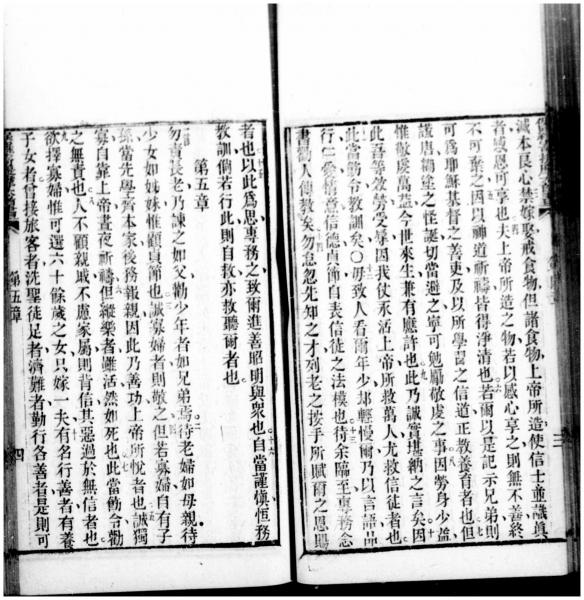 滅本良心禁嫁娶戒食物但諸食物上帝所造使信士並識眞
者感恩可享也夫上帝所造之物若以感心享之則無不善終
不可棄之因以神道祈禱皆得淨清也若爾以是記示兄弟則
可爲耶穌基督之善吏及以所學習之信道正敎養育者也但
謊唐媼婆之怪誕切當避之寧可勉厲敬虔之事因勞身少益
惟敬虔萬益今世來生兼有應許也此乃誠實堪納之言矣因
此吾等效勞受辱因我仗永活上帝所救萬人尤救信徒者也
此當飭令敎訓矣〇毋致人看爾年少輕慢爾乃以言語品
行仁愛情意信德貞節自表信徒之法模也待余臨至專務念
書勸人傳敎矣勿怠忽先知之才列老之按手所賦爾之恩賜
三
者也以此爲思專務之致爾進善昭明與衆也自當謹愼恒務
敎訓倘若行此則自救亦救聽爾者也
第五章
勿責長老乃諫之如父勸少年者如兄弟焉待老婦如母親待
少女如姊妹惟顧貞節也誠寡婦者則敬之但若寡婦自有子
孫當先學齊本家後務報親因此乃善功上帝所悅者也誠獨
寡自靠上帝晝夜祈禱但縱樂者雖活然如死也此當飭令勸
之無責也人不顧親戚不慮家屬則背信其惡過於無信者也
欲擇寡婦惟可選六十餘歲之女只嫁一夫有名行善者有養
子女者曾接旅客者洗聖徒足者濟難者勤行各善者是則可
第五章
四